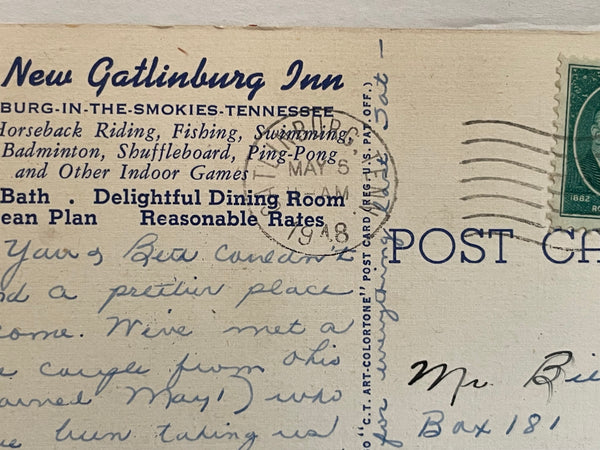 New Gatlinburg Inn
BURG-IN-THE-SMOKIES-TENNESSEE
Horseback Riding, Fishing, Swimming
Badminton, Shuffleboard, Ping-Pong
and Other Indoor Games
Bath . Delightful Dining Room
ean Plan Reasonable Rates
You & Bea couldn't
nd a prettier place
come. We've met a
couple from Ohio
May 1) who
been taking us
for everything last Sat -
"C.T. ART-COLORTONE" POST CARD (REG. U.S. PAT. OFF.)
GATLINBURG
MAY 5
AM
1948
1882
POST CA
Mr. Bil
Box 181